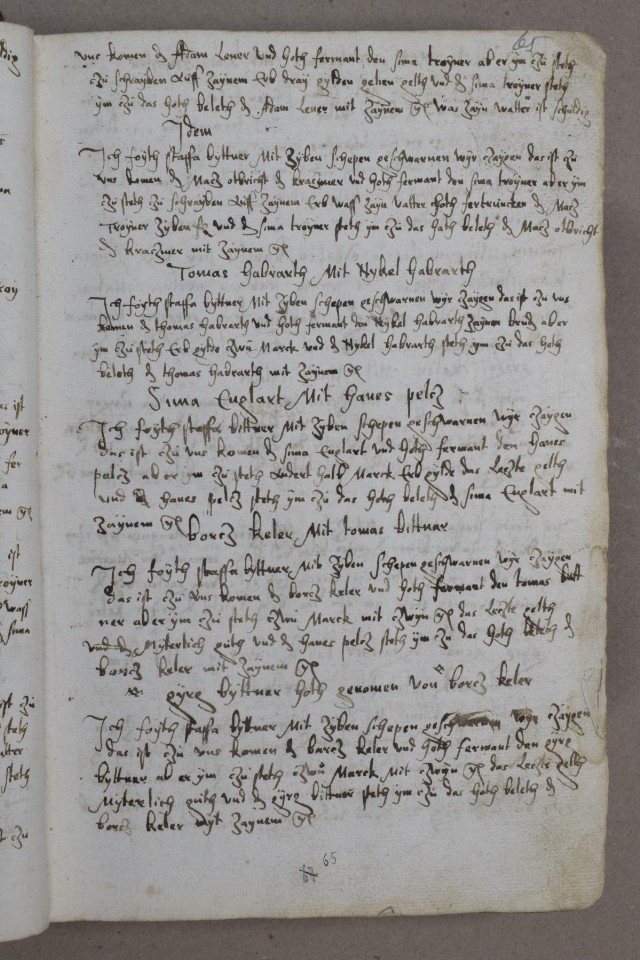 65
vns komen d Adam Lener vnd hoth fermant den sima troyner ab er ym czu steth
czu schrayben auff zaynem Erb dray gylden gelien gelth vnd d sima troyner steth
ym czu das hoth beleth d Adam Lener mit zaynem gl was zayn vatter ist schuldig
Idem
Ich foyth staffa byttner Mit zyben schepen geschwarnen wyr czaygen das ist czu
vns komen d Macz olbricht d kraczmer vnd hoth fermant den sima troyner ab er ym
czu steth czu schrayben auff zaynem Erb wass zayn vatter hoth fertruncken d Macz
Troyner zyben gl vnd d sima troyner steth ym czu das hoth beleth d Macz olbricht
d kraczmer mit zaynem gl
Tomas habrarth Mit Nykel habrarth
Ich foyth staffa byttner Mit zyben schepen geschwarnen wyr czaygen das ist czu vns
komen d thomas habrarth vnd hoth fermant den Nykel habrarth zaynen brud ab er
ym czu steth Erb gylde zwu Marck vnd d Nykel habrarth steth ym czu das hoth
beleth d thomas habrarth mit zaynem gl
Sima Englart Mit hanes pelcz
Ich foyth staffa bittner Mit zyben schepen geschwarnen wyr czaygen
das ist czu vns komen d sima Englart vnd hoth fermant den hanes
pelcz ab er ym czu steth andert halb Marck Erb gylde das Leczte gelth
vnd d hanes pelcz steth ym czu das hoth beleth d sima Englart mit
zaynem gl
borcz keler Mit tomas bittnar
Ich foyth staffa byttner Mit zyben schepen geschwarnen wyr czaygen
das ist czu vns komen d borcz keler vnd hoth fermant den tomas bitt
ner ab er ym czu steth czwu Marck mit czwyn gl das Leczte gelth
Myterlich guth vnd d hanes pelcz steth ym czu das hoth beleth d
borcz keler mit zaynem gl
gyrg byttner hoth genomen von borcz keler
Ich foyth staffa byttner Mit zyben schepen geschwarnen wyr czaygen
das ist czu vns komen d barcz keler vnd hoth fermant den gyrg
byttner ab er ym czu steth czwu Marck Mit czwyn gl das Leczte gelth
Myterlich guth vnd d gyrg bittner steth ym czu das hoth beleth d
borcz keler myt zaynem gl
65